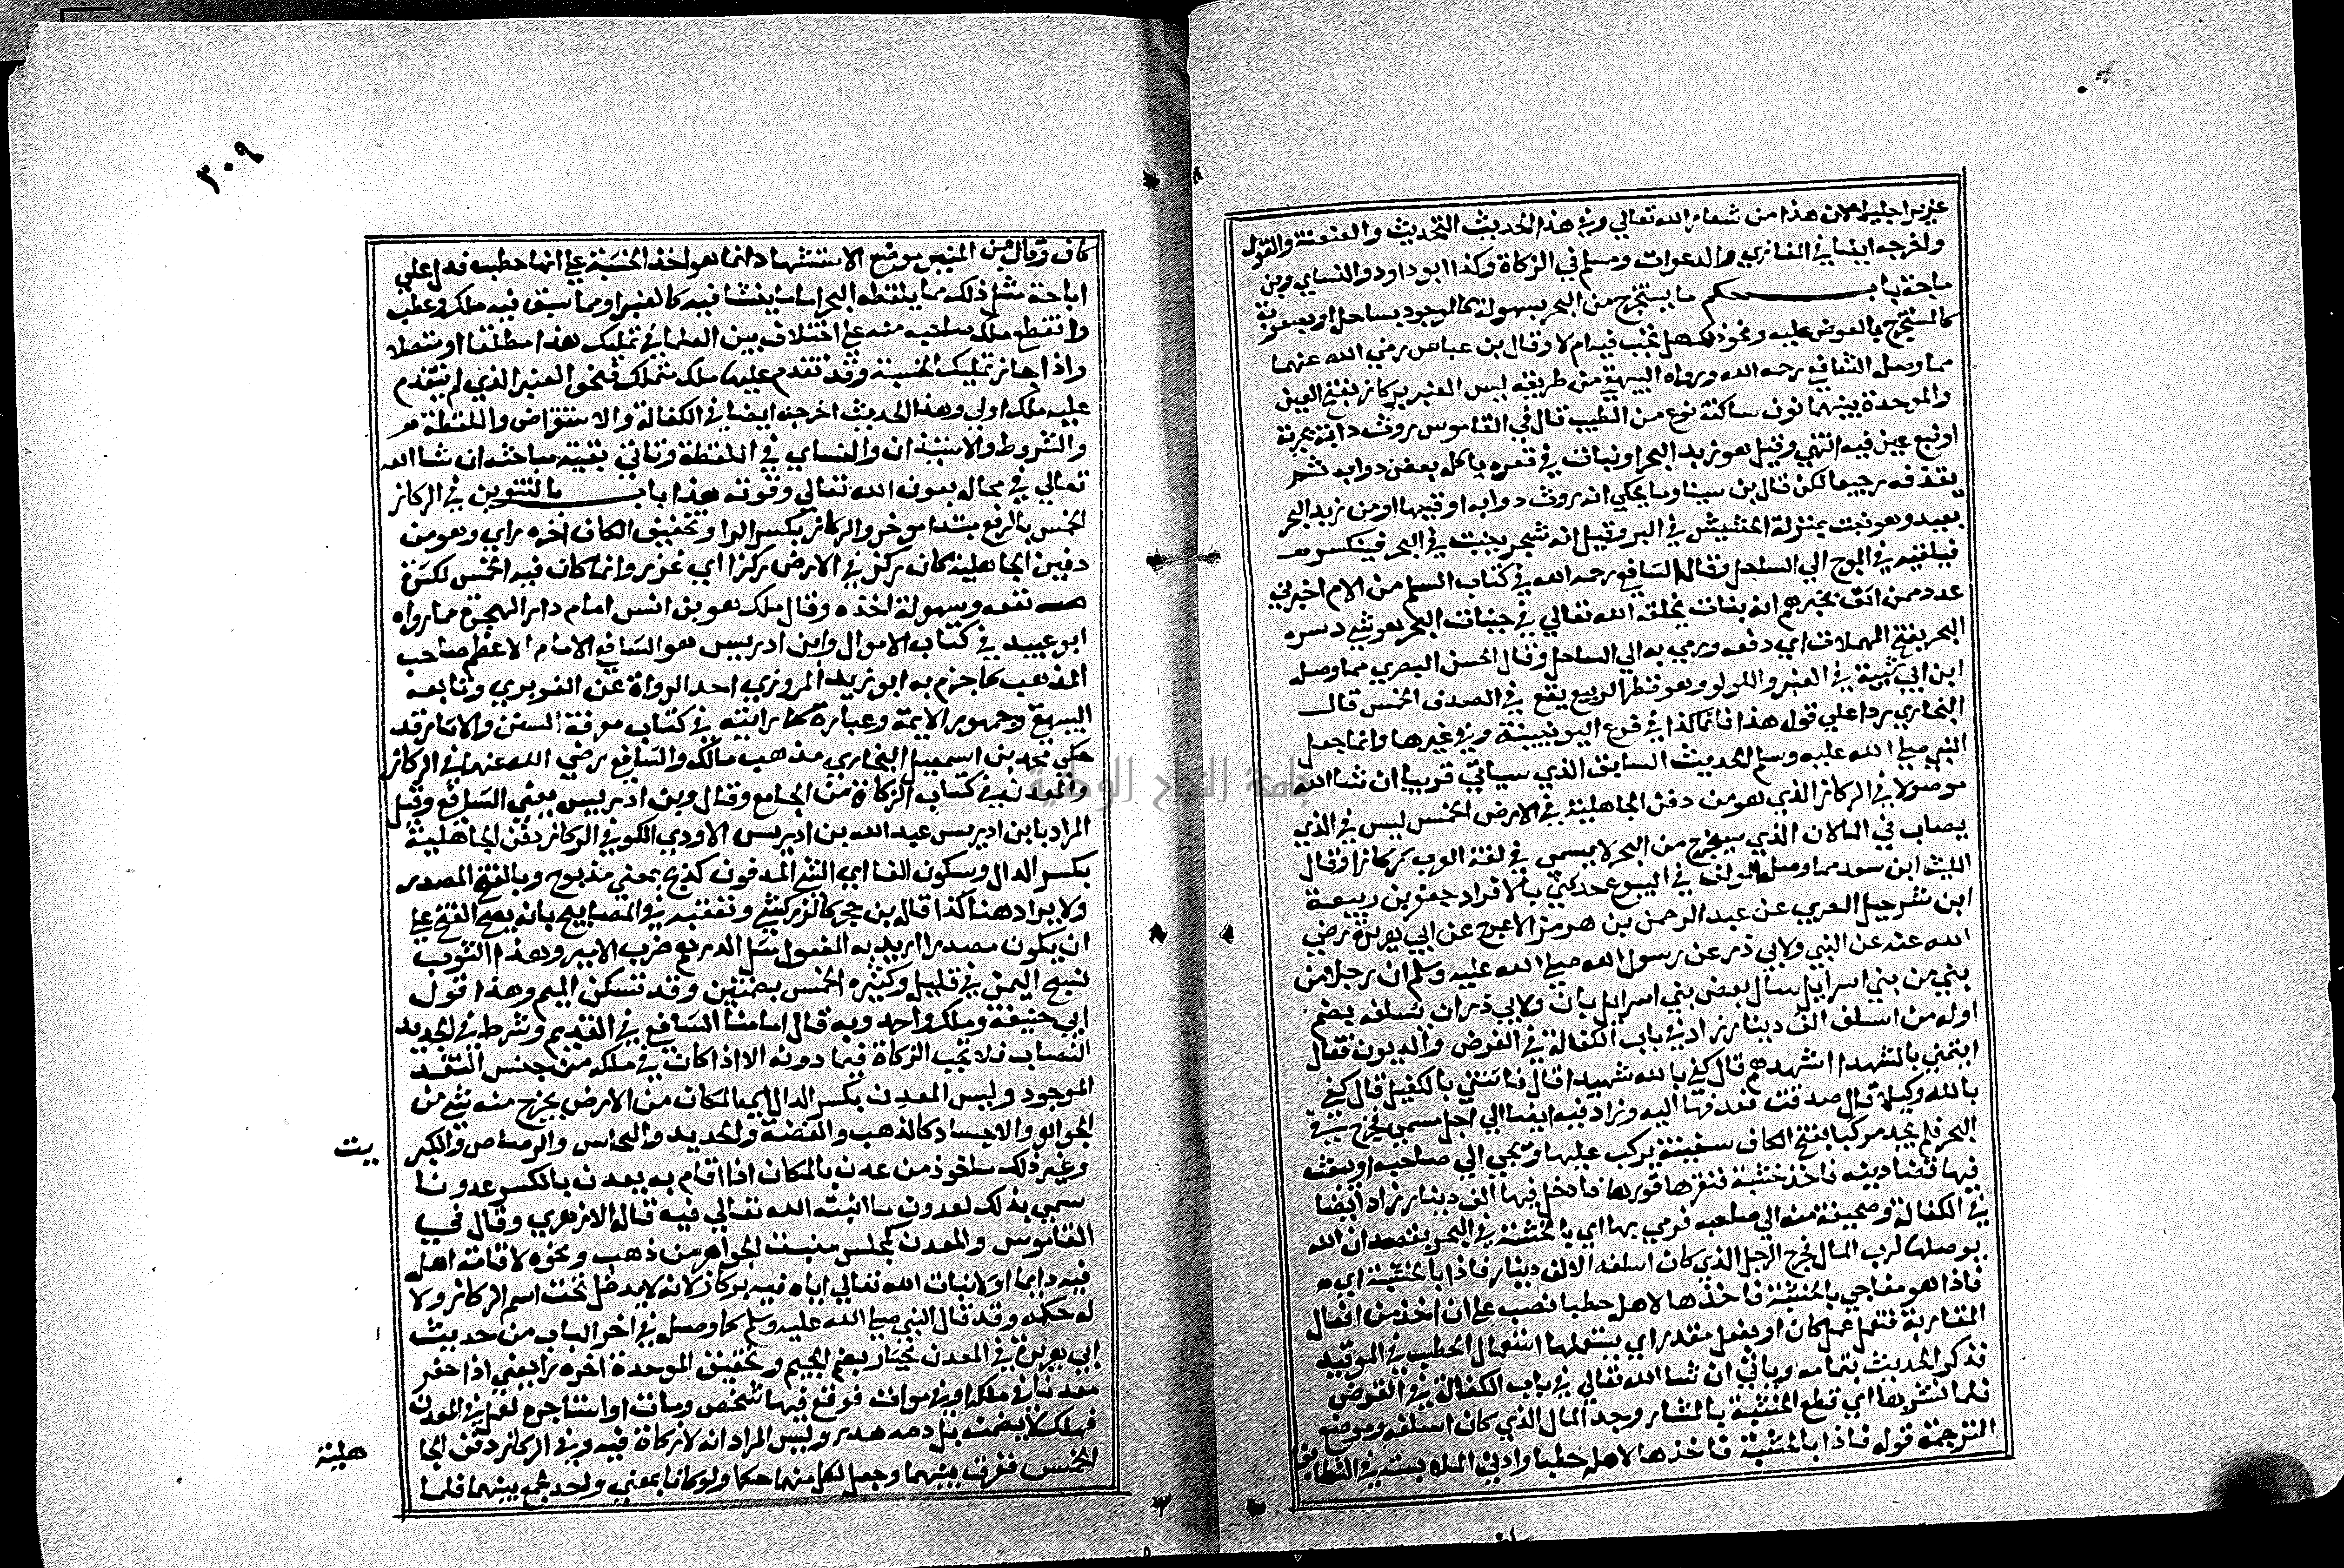 عزيزا جليلا لان هذا من شعار الله تعالى وفي هذا الحديث التحديث والعنعنة والقول
واخرجه ايضا في المغازي والدعوات ومسلم في الزكاة وكذا ابو داود والنساي وبن
ماجة باب حكم ما يستخرج من البحر بسهولة كالموجود بساحله او بصعوبة
كالمستخرج بالغوص عليه ونحو ذلك هل تجب فيه ام لا وقال بن عباس رضي الله عنهما
مما وصله الشافعي رحمه الله ورواه البيهقي من طريقه ليس العنبر بركاز بفتح العين
والموحدة بينهما نون ساكنة نوع من الطيب قال في القاموس روث دابة بحرية
او نبع عين فيه انتهي وقيل هو زبد البحر او نبات في قعره ياكله بعض دوابه ثم
تقذفه رجيعا لكن قال بن سينا وما يحكي انه روث دوابه او قيها او من زبد البحر
بعيد وهو نبت بمنزلة الحشيش في البر وقيل انه شجر ينبت في البحر فينكسر
فيلقيه في الموج الي الساحل وقال الشافعي رحمه الله في كتاب السلم من الام اخبرني
عدد ممن اثق بخبرهم انه نبات يخلقه الله تعالي في جنبات البحر هو شي دسره
البحر بفتح المهملات اي دفعه ورمي به الي الساحل وقال الحسن البصري مما وصله
ابن ابي شيبة في العنبر واللولو وهو قطر الربيع يقع في الصدف الخمس قال
البخاري ردا علي قول هذا فانما كذا في فرع اليونينية وفي غيرها وانما جعل
النبي صلى الله عليه وسلم الحديث السابق الذي سياتي قريبا ان شا الله
موصولا في الركاز الذي هو من دفن الجاهلية في الارض الخمس ليس في الذي
يصاب في الما لان الذي يستخرج من البحر لا يسمي في لغة العرب ركازا وقال
الليث ابن سعد مما وصله المولف في البيوع حدثني بالافراد جعفر بن ربيعة
ابن شرحبيل المصري عن عبد الرحمن بن هرمز الاعرج عن ابي هريرة رضي
الله عنه عن النبي ولابي ذر عن رسول الله صلى الله عليه وسلم ان رجلا من
بني من بني اسرايل سال بعض بني اسرايل بان ولابي ذر ان يسلفه بضم
اوله من اسلف الف دينار زاد في باب الكفالة في القرض والديون فقال
ايتني بالشهدا اشهدهم قال كفي بالله شهيدا قال فاتني بالكفيل قال كفي
بالله وكيلا قال صدقت فدفعها اليه وزاد فيه ايضا الي اجل مسمي فخرج في
البحر فلم يجد مركبا بفتح الكاف سفينة يركب عليها ويجي الي صاحبه او يبعث
فيها قضا دينه فاخذ خشبة فنقرها قورها فادخل فيها الف دينار زاد ايضا
في الكفالة وصحيفة منه الي صاحبه فرمي بها اي بالخشبة في البحر بقصد ان الله
يوصلها لرب المال فخرج الرجل الذي كان اسلفه الالف دينار فاذا بالخشبة اي
فاذا هو مفاجي بالخشبة فاخذها لاهله حطبا نصب علي ان اخذ من افعال
المقاربة فتعمل عمل كان او بفعل مقدر اي يستعملها استعمال الحطب في الوقيد
فذكر الحديث بتمامه وياتي ان شا الله تعالي في باب الكفالة في القرض
فلما نشرها اي قطع الخشبة بالمنشار وجد المال الذي كان اسلفه وموضع
الترجمة قوله فاذا بالخشبة فاخذها لاهله حطبا وادني الملابسة في التطابق
٣٠٩
كاف وقال بن المنير موضع الاستشهاد انما هو اخذ الخشبة علي انها حطب فدل علي
اباحة مثل ذلك مما يلقطه البحر اما ما ينشا فيه كالعنبر او مما سبق فيه ملك وعطب
وانقطع ملك صاحبه منه علي اختلاف بين العلما في تمليك هذا مطلقا او مفصلا
واذا جاز تمليك الخشبة وقد تقدم عليها ملك متملك فنحو العنبر الذي لم يتقدم
عليه ملك اولي وهذا الحديث اخرجه ايضا في الكفالة والاستقراض واللقطة
والشروط والاستيذان والنساي في اللقطة وتاتي بقية مباحثه ان شا الله
تعالي في محاله بعون الله تعالي وقوته هذا باب بالتنوين في الركاز
الخمس بالرفع مبتدا موخر والركاز بكسر الرا وتخفيف الكاف اخره زاي وهو من
دفين الجاهلية كانه ركز في الارض ركزا اي غرز وانما كان فيه الخمس لكثرة
نفعه وسهولة اخذه وقال ملك هو بن انس امام دار الهجرة مما رواه
ابو عبيد في كتاب الاموال وابن ادريس هو الشافعي الامام الاعظم صاحب
المذهب كما جزم به ابو زيد المروزي احد الرواة عن الفربري وتابعه
البيهقي وجمهور الايمة وعبارة كما رايته في كتاب معرفة السنن والاثار قد
حكي محمد بن اسمعيل البخاري مذهب مالك والشافعي رضي الله عنهما في الركاز
والمعدن في كتاب الزكاة من الجامع وقال وبن ادريس يعني الشافعي وقيل
المراد بابن ادريس عبد الله بن ادريس الاودي الكوفي الركاز دفن الجاهلية
بكسر الدال وسكون الفا اي الشي المدفون كذبح بمعني مذبوح وبالفتح المصدر
ولا يراد هنا كذا قال بن حجر كالزركشي وتعقبه في المصابيح بانه يصح الفتح علي
ان يكون مصدرا اريد به المفعول مثل الدرهم ضرب الامير وهذا الثوب
نسج اليمن في قليله وكثيره الخمس بضمتين وقد تسكن الميم وهذا قول
ابي حنيفة وملك واحمد وبه قال امامنا الشافعي في القديم وشرط في الجديد
النصاب فلا تجب الزكاة فيما دونه الا اذا كان في ملكه من جنس النقد
الموجود وليس المعدن بكسر الدال اي المكان من الارض يخرج منه شي من
الجواهر والاجساد كالذهب والفضة والحديد والنحاس والرصاص والكبر
يت
وغير ذلك ماخوذ من عدن بالمكان اذا اقام به يعدن بالكسر عدونا
سمي بذلك لعدون ما انبته الله تعالي فيه قاله الازهري وقال في
القاموس والمعدن كمجلس منبت الجواهر من ذهب ونحوه لاقامة اهله
فيه دايما او لانبات الله تعالي اياه فيه بركاز لانه لا يدخل تحت اسم الركاز ولا
له حكمه وقد قال النبي صلى الله عليه وسلم كما وصله في اخر الباب من حديث
ابي هريرة في المعدن جبار بضم الجيم وتخفيف الموحدة اخره را يعني اذا حفر
معدنا في ملكه او في موات فوقع فيها شخص ومات او استاجره لعمل في المعدن
فهلك لا يضمنه بل دمه هدر وليس المراد انه لا زكاة فيه وفي الركاز دفن الجا
هلية
الخمس ففرق بينهما وجعل لكل منهما حكما ولو كانا بمعني واحد جمع بينهما فلما
جامعة النجاح الوطنية